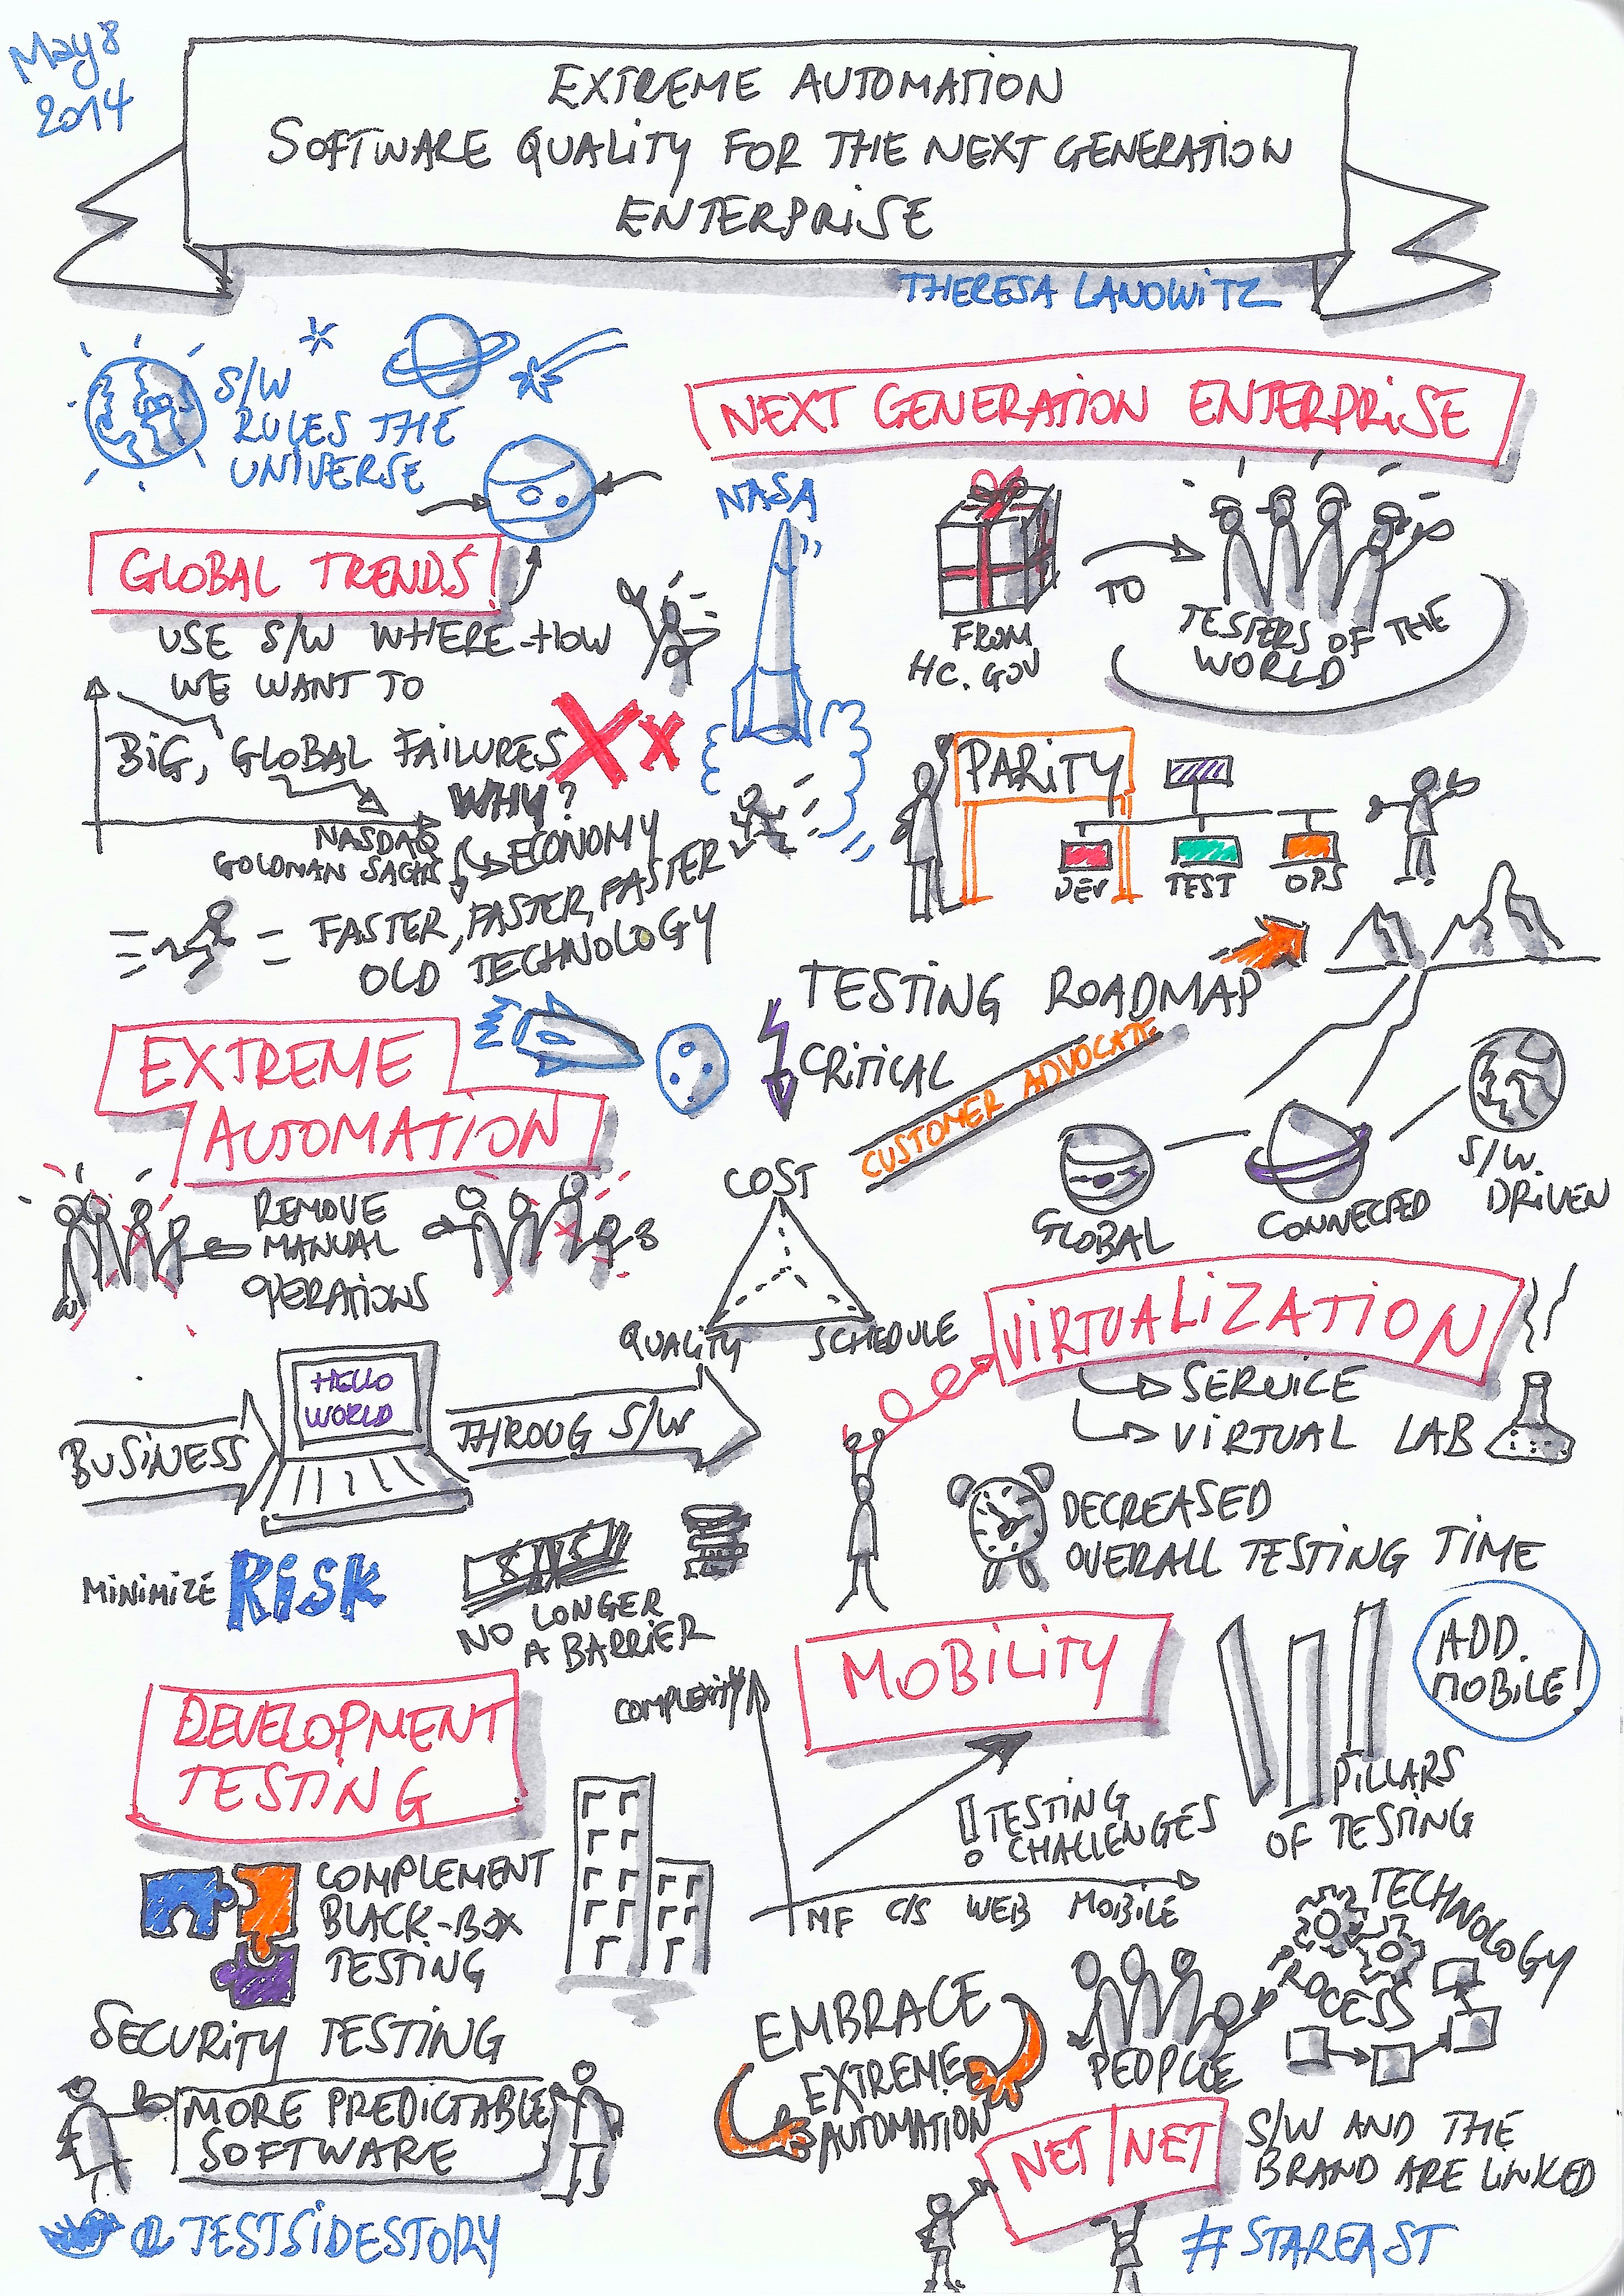 May 8
2014
EXTREME AUTOMATION
SOFTWARE QUALITY FOR THE NEXT GENERATION
ENTERPRISE
THERESA LANOWITZ
S/W
RULES THE
UNIVERSE
GLOBAL TRENDS
USE S/W WHERE-HOW
WE WANT TO
BIG, GLOBAL FAILURES
WHY?
NASDAQ
GOLDMAN SACHS
ECONOMY
FASTER, FASTER, FASTER
OLD TECHNOLOGY
EXTREME
AUTOMATION
REMOVE
MANUAL
OPERATIONS
BUSINESS
HELLO
WORLD
THROUG S/W
MINIMIZE RISK
NO LONGER
A BARRIER
DEVELOPMENT
TESTING
COMPLEMENT
BLACK-BOX
TESTING
SECURITY TESTING
MORE PREDICTABLE
SOFTWARE
@TESTSIDESTORY
NEXT GENERATION ENTERPRISE
NASA
FROM
HC.GOV
TO
TESTERS OF THE
WORLD
PARITY
DEV
TEST
OPS
TESTING ROADMAP
CRITICAL
CUSTOMER ADVOCATE
COST
QUALITY
SCHEDULE
GLOBAL
CONNECTED
S/W.
DRIVEN
VIRTUALIZATION
SERVICE
VIRTUAL LAB
DECREASED
OVERALL TESTING TIME
MOBILITY
COMPLEXITY
! TESTING
CHALLENGES
MF C/S WEB MOBILE
PILLARS
OF TESTING
ADD.
MOBILE!
EMBRACE
EXTREME
AUTOMATION
PEOPLE
PROCESS
TECHNOLOGY
NET|NET
S/W AND THE
BRAND ARE LINKED
#STAREAST